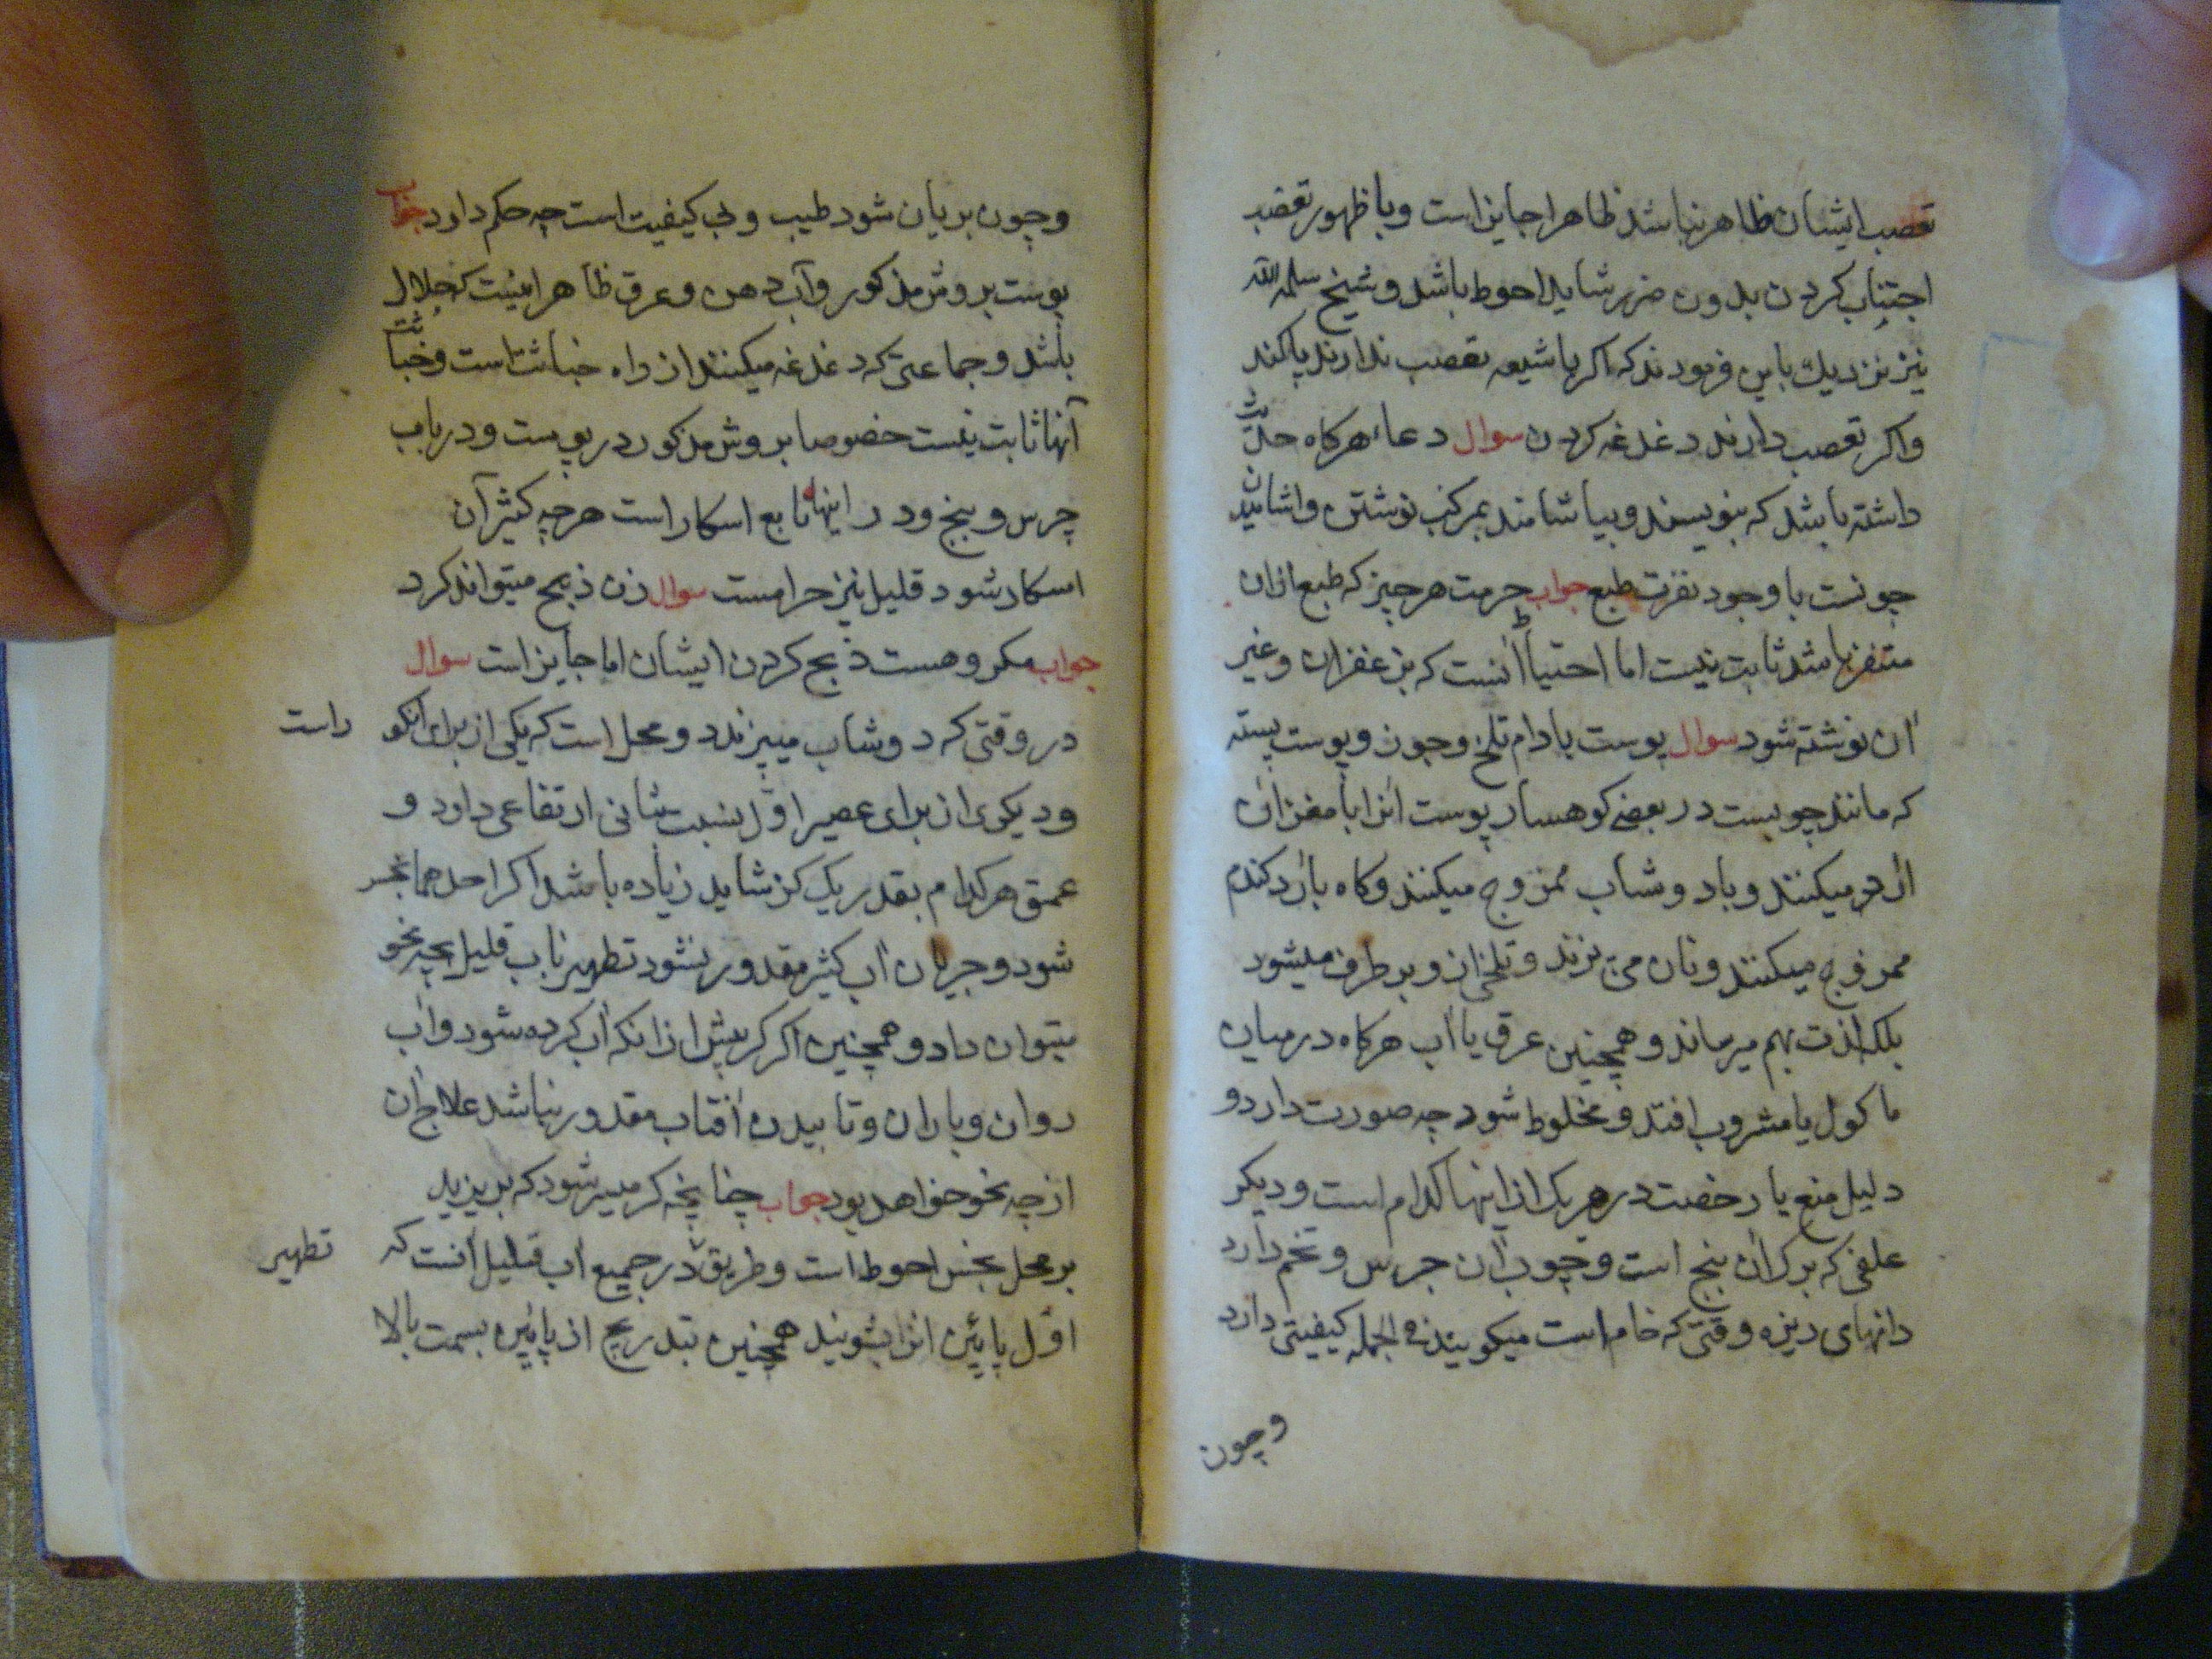 تعصب ایشان ظاهر نباشد ظاهرا جایز است و با ظهور تعصب
اجتناب کردن بدون ضرر شاید احوط باشد و شیخ سلمه الله
نیز نزدیك باین فرمودند که اکر با شیعه تعصب ندارند پاکند
و اکر تعصب دارند دغدغه کردن سوال دعاء هرکاه حدیث
داشته باشد که بنویسند و بیاشامند بمرکب نوشتن و اشامیدن
چونست با وجود نفرت طبع جواب حرمت هر چیز که طبع ازان
متنفر باشد ثابت نیست اما احتیاط انست که بزعفران و غیر
ان نوشته شود سوال پوست بادام تلخ و چون و پوست پسته
که مانند چوبست در بعضی کوهسار پوست انرا با مغز ان
ارد میکنند و با دوشاب ممزوج میکنند و کاه بارد کندم
ممزوج میکنند و نان می پزند و تلخی ان و برطرف میشود
بلکه لذت بهم میرساند و همچنین عرق یا آب هرکاه در میان
ماکول یا مشروب افتد و مخلوط شود چه صورت دارد و
دلیل منع یا رخصت در هر یک از اینها کدام است و دیکر
علفی که برک ان بنج است و چوب ان جرس و تخم دارد
دانهای ریزه وقتی که خام است میکویند فی الجمله کیفیتی دارد
و چون
و چون بریان شود طیب و بی کیفیت است چه حکم دارد جواب
پوست بروش مذکور و آب دهن و عرق ظاهرا اینست که حلال
باشد و جماعتی که دغدغه میکنند از راه خباثت است و خباثت
آنها ثابت نیست خصوصا بروش مذکور در پوست و در باب
چرس و بنج و در اینها تابع اسکار است هر چه کثیر آن
اسکار شود قلیل نیز حرامست سوال زن ذبح میتواند کرد
جواب مکروهست ذبح کردن ایشان اما جایز است سوال
در وقتی که دوشاب میپزند دو محل است که یکی از برای انکور است
و دیکری از برای عصیر اول بنسبت بثانی ارتفاعی دارد و
عمق هر کدام بقدر یک کز شاید زیاده باشد اکر احدهما نجس
شود و جریان اب کثیر مقدور نشود تطهیر باب قلیل بچه نحو
میتوان داد و همچنین اکر کر پیش از انکه اب کرده شود و اب
روان و باران و تابیدن افتاب مقدور نباشد علاج ان
از چه نحو خواهد بود جواب چنانچه کر میسر شود که بریزید
بر محل نجس احوط است و طریق تطهیر در جمیع اب قلیل انست که
اول پایین انرا بشویند همچنین بتدریج از پایین بسمت بالا